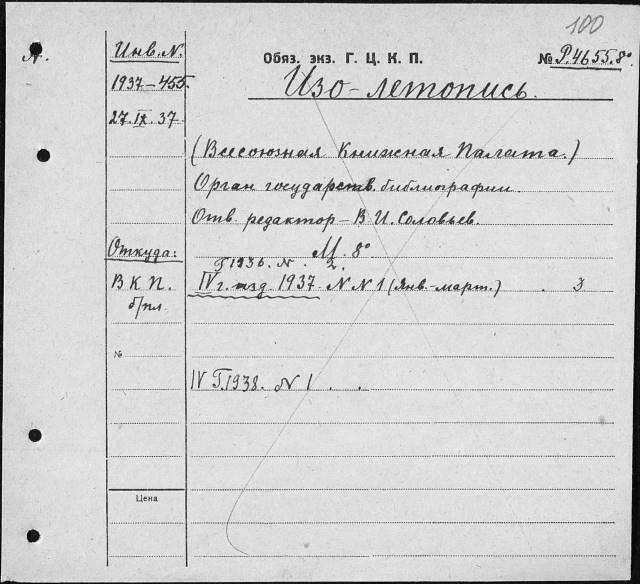 100
А.
Инв. N.
Обяз. экз. Г. Ц. К. П.
№ Р.4655.8°
1937-455.
Изо-летопись.
27.IX.37
(Всесоюзная Книжная Палата.)
Орган государств. библиографии.
Отв. редактор - В. И. Соловьев.
Откуда:
М. 8°
Г 1936. N. 2.
В К П.
IV г. изд. 1937. N N 1 (янв.-март.) . 3
б/пл.
№
IV Г. 1938. N 1 . .
Цена